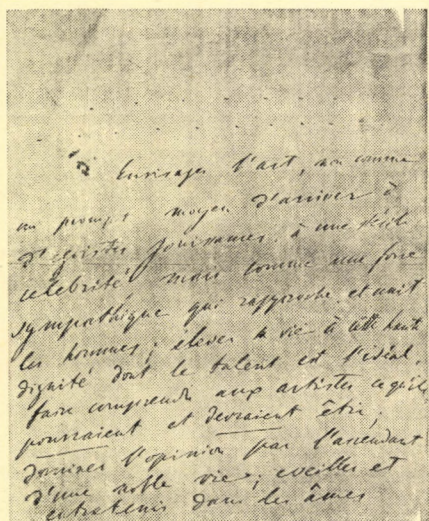 Envisager l'art, non comme
un prompt moyen d'arriver à
d'égoïstes jouissances, à une stérile
célébrité mais comme une force
sympathique qui rapproche et unit
les hommes; élever sa vie à cette haute
dignité dont le talent est l'idéal,
faire comprendre aux artistes ce qu'ils
pourraient et devraient être;
dominer l'opinion par l'ascendant
d'une noble vie; éveiller et
entretenir dans les âmes